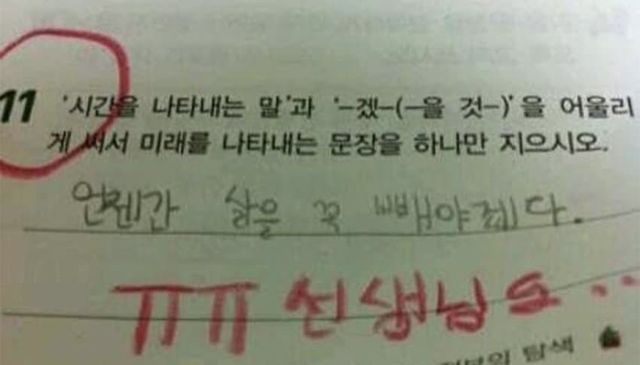 11 '시간을 나타내는 말'과 '-겠-(-을 것-)'을 어울리
게 써서 미래를 나타내는 문장을 하나만 지으시오.
언젠간 살을 꼭 빼야겠다.
ㅠㅠ 선생님도..
탐색